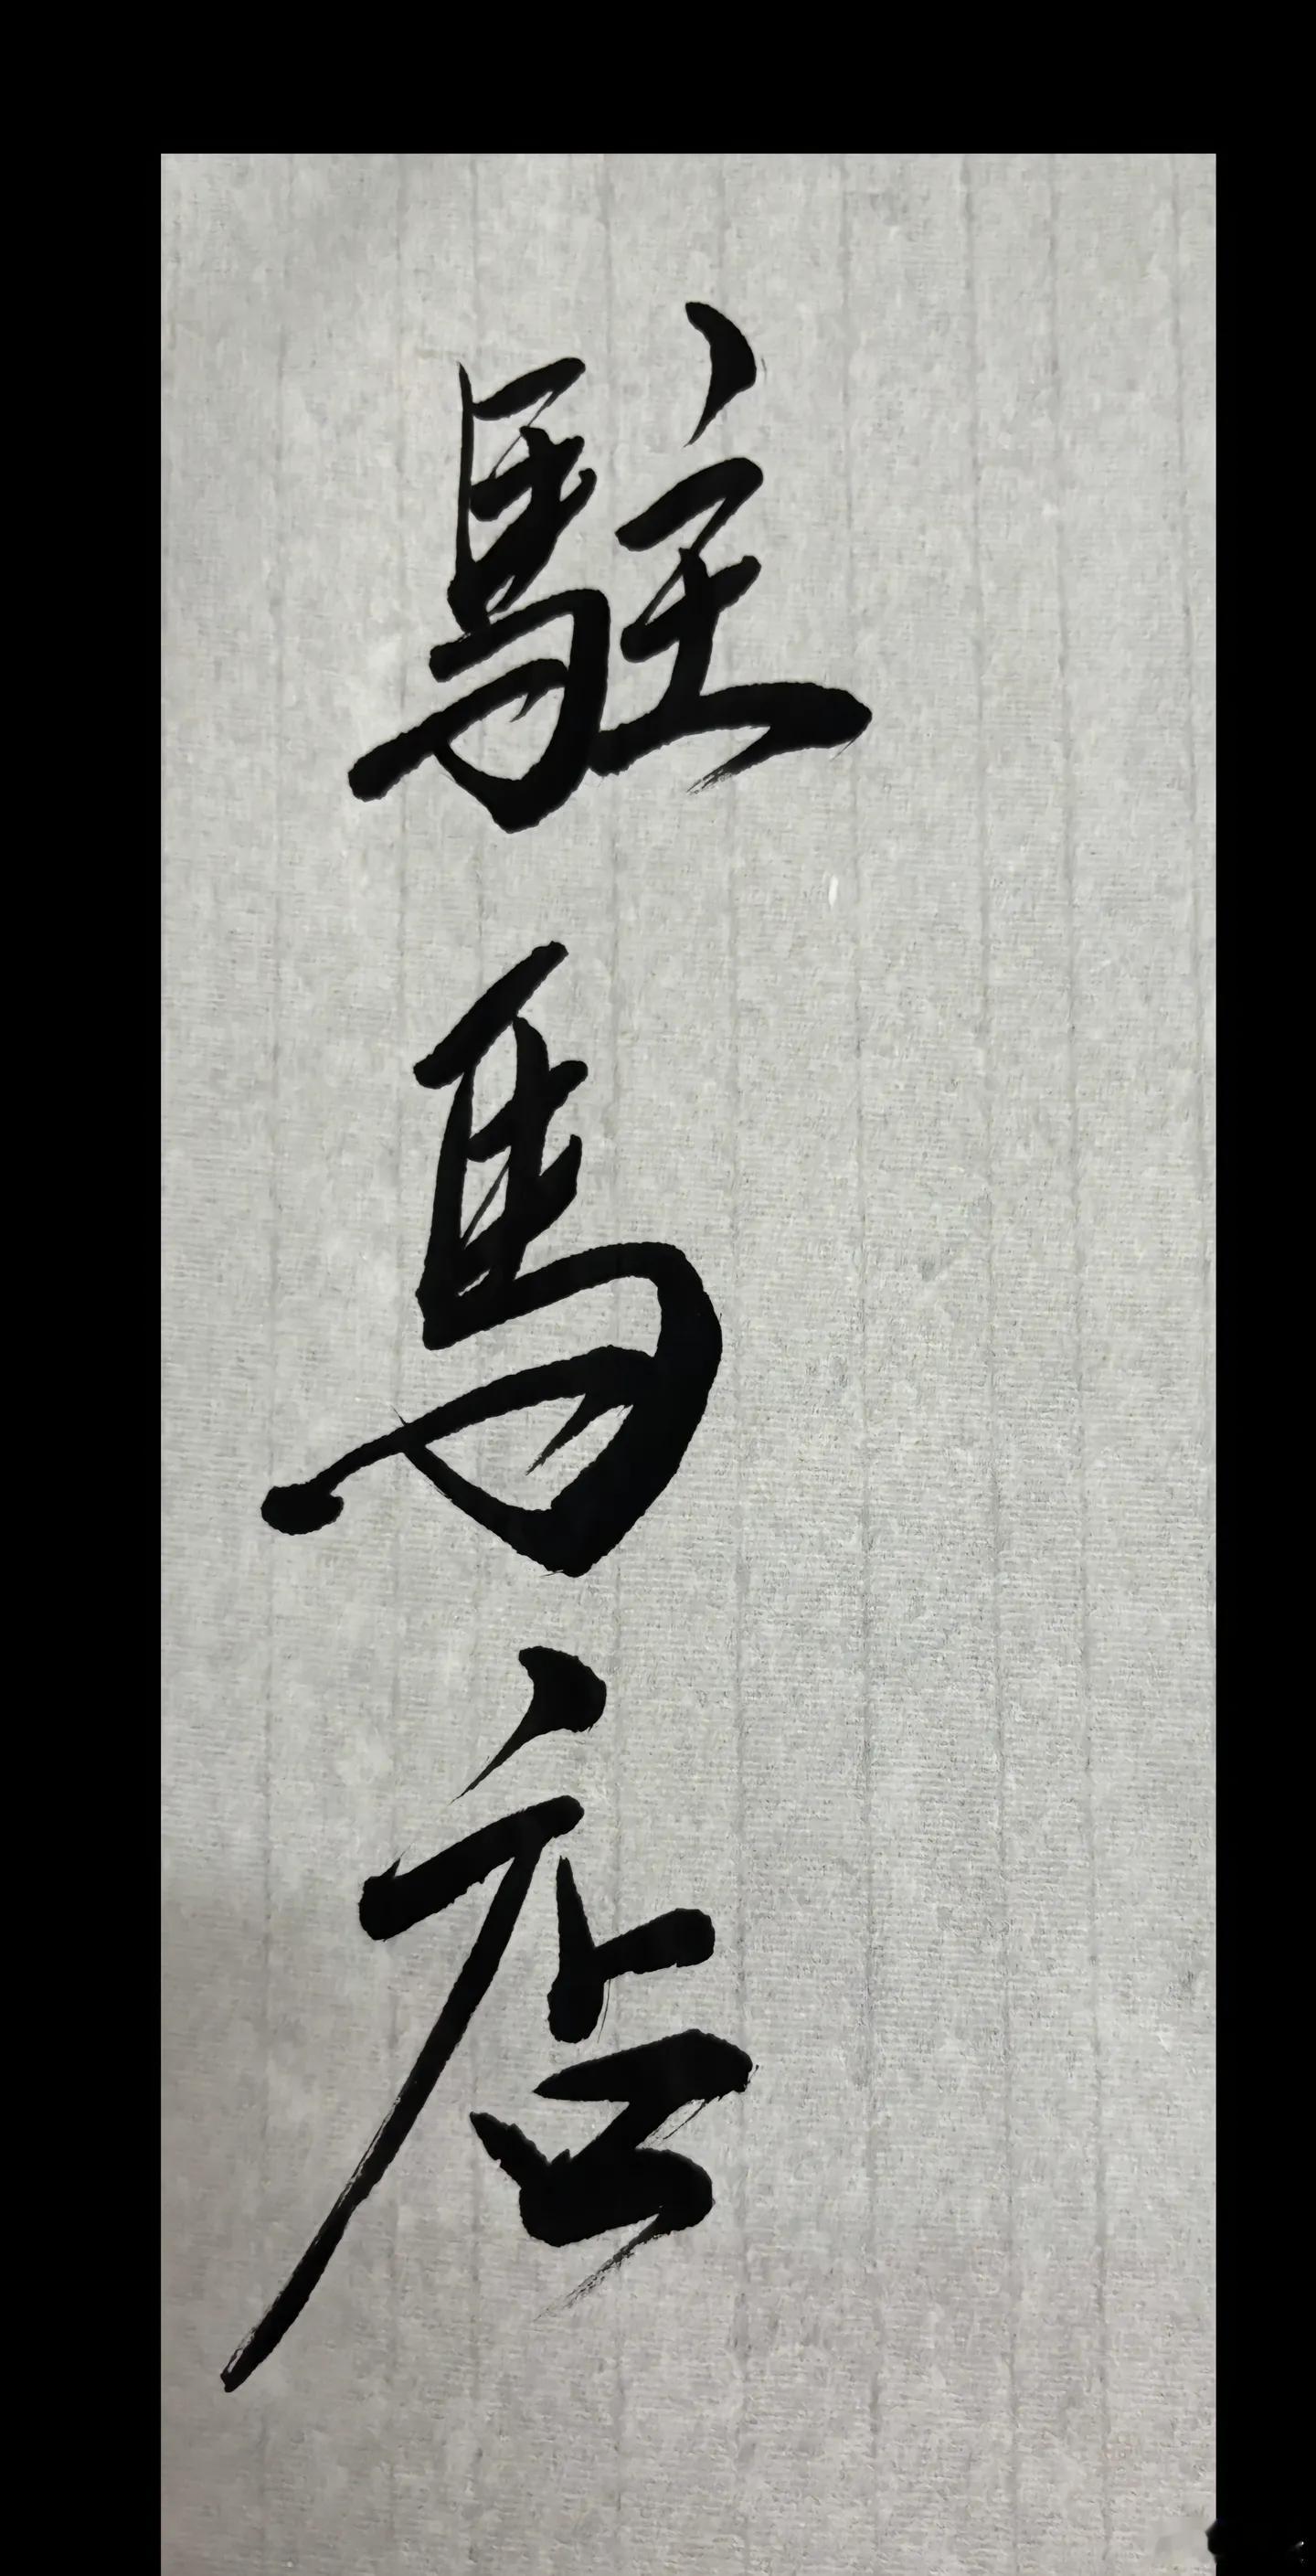 駐馬店